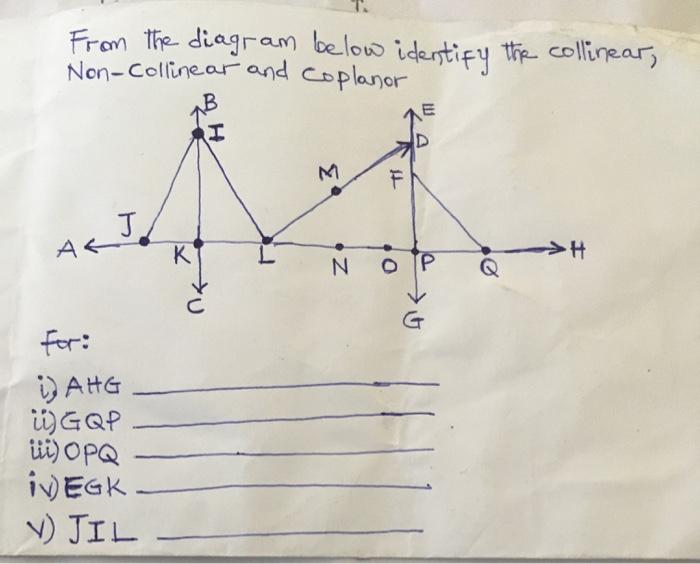 From the diagram below identify the collinear,
Non-Collinear and Coplanor
B
E
I
D
M
F
J
A
K
L
N
O
P
Q
H
C
G
for:
i) AHG
ii) GQP
iii) OPQ
iv) EGK
v) JIL